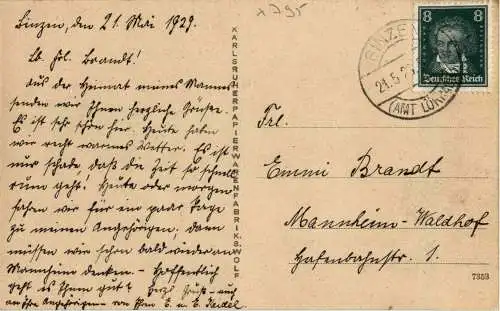 Binzen, den 21. Mai 1929.
Lb. Frl. Brandt!
Aus der Heimat meines Mannes
senden wir Ihnen herzliche Grüße.
Es ist sehr schön hier. Heute haben
wir recht warmes Wetter. Es ist
nur schade, daß die Zeit so schnell
rum geht! Heute oder morgen
fahren wir für ein paar Tage
zu meinen Angehörigen, dann
müssen wir schon bald wieder an
Mannheim denken. – Hoffentlich
geht es Ihnen gut? Herzl. Grüße – auch
an Ihre Angehörigen – von Ihren E. u. E.
KARLSRUHER PAPIERWARENFABRIK S. WOLF
8 8
Deutsches Reich
BINZEN
21.5.29
(AMT LÖRRACH)
Frl.
Emmi Brandt
Mannheim-Waldhof
Hafenbahnstr. 1.
7353